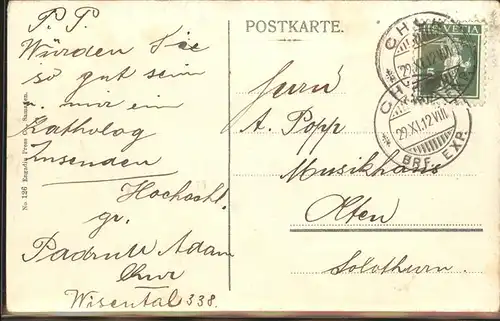 P. P.
Würden Sie
so gut sein
u. mir ein
Katholog
Zusenden
Hochacht.
gr.
Padrutt Adam
Chur
Wisental 338.
No. 126 Engadin Press Co., Samaden.
POSTKARTE.
Herrn
A. Popp
Musikhaus
Olten
Solothurn.
HELVETIA
5
CHUR
29.XI.12.VIII.
CHUR
29.XI.12.VIII.
BRF. EXP.